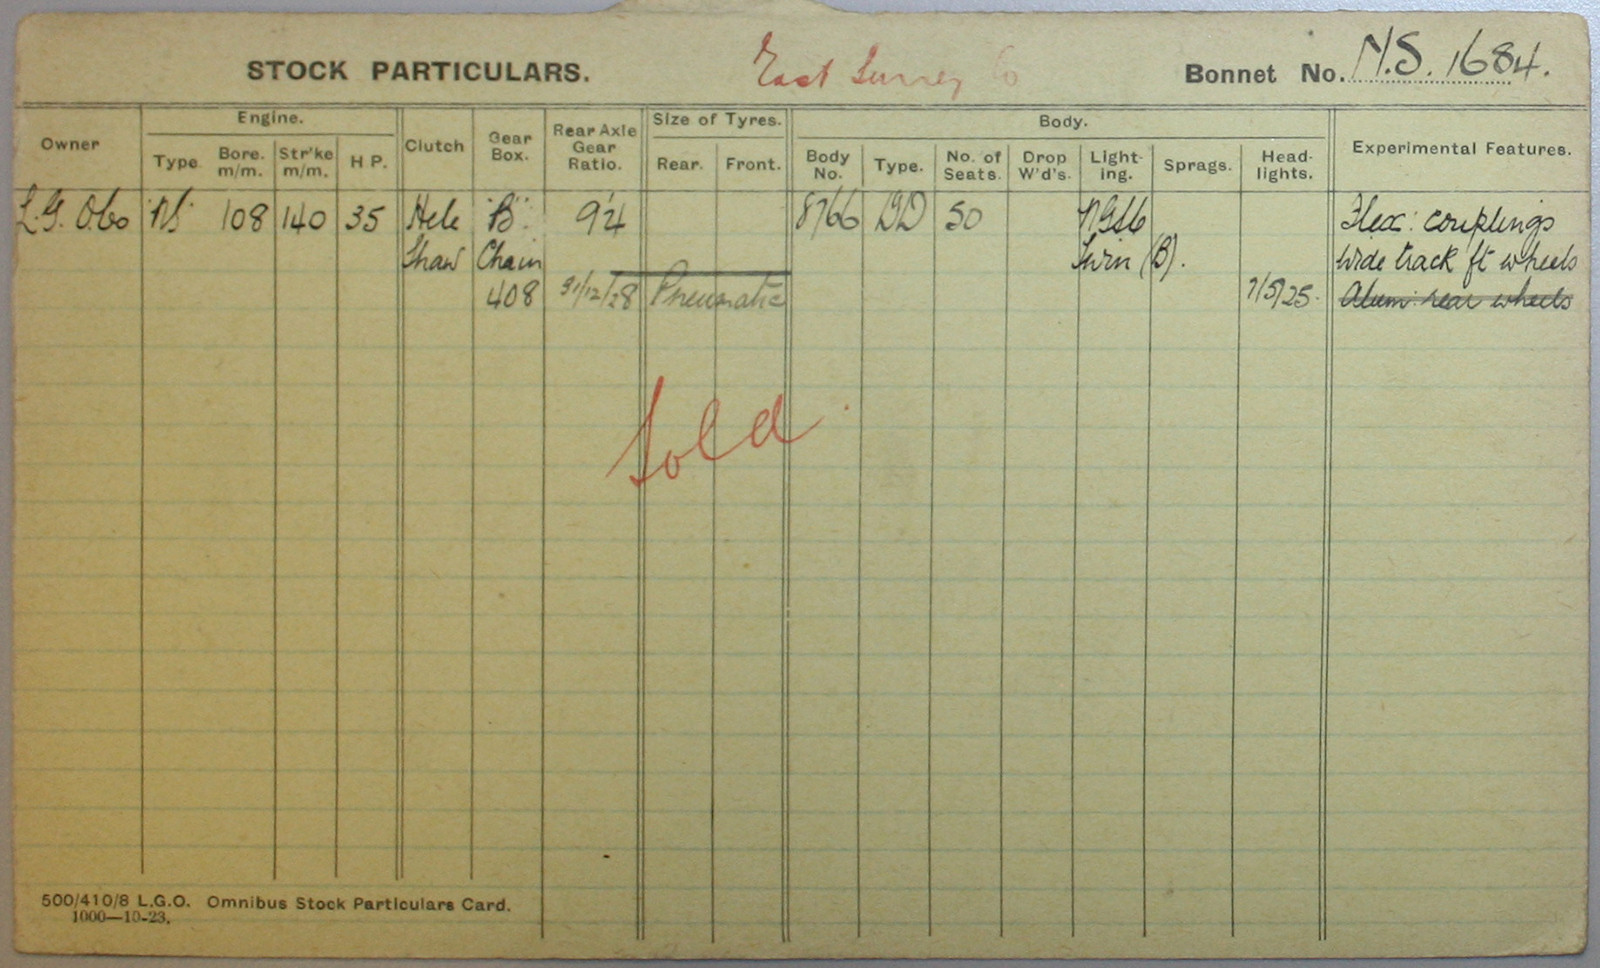 STOCK PARTICULARS. East Surrey Co Bonnet No. N.S. 1684.
Owner Engine. Type Bore. m/m. Str'ke m/m. H P. Clutch Gear Box. Rear Axle Gear Ratio. Size of Tyres. Rear. Front. Body. Body No. Type. No. of Seats. Drop W'd's. Light-ing. Sprags. Head-lights. Experimental Features.
L.G. Obo NS 108 140 35 Hele "B" 9'4 8766 DD 50 Flex: couplings
Shaw Chain Twin (B). wide track ft wheels
408 31/12/28 Pneumatic 7/5/25. Alum: rear wheels
Sold
500/410/8 L.G.O. Omnibus Stock Particulars Card.
1000—10-23.